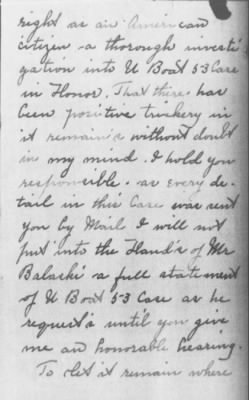 right as an American
citizen a thorough investi
gation into U Boat 53 Case
in Honor. That there has
been positive trickery in
it remain's without doubt
in my mind. I hold you
responsible. as every de-
tail in this Case was sent
you by Mail I will not
put into the Hand's of Mr
Balaski a full statement
of U Boat 53 Case as he
request's until you give
me an honorable hearing.
To let it remain where